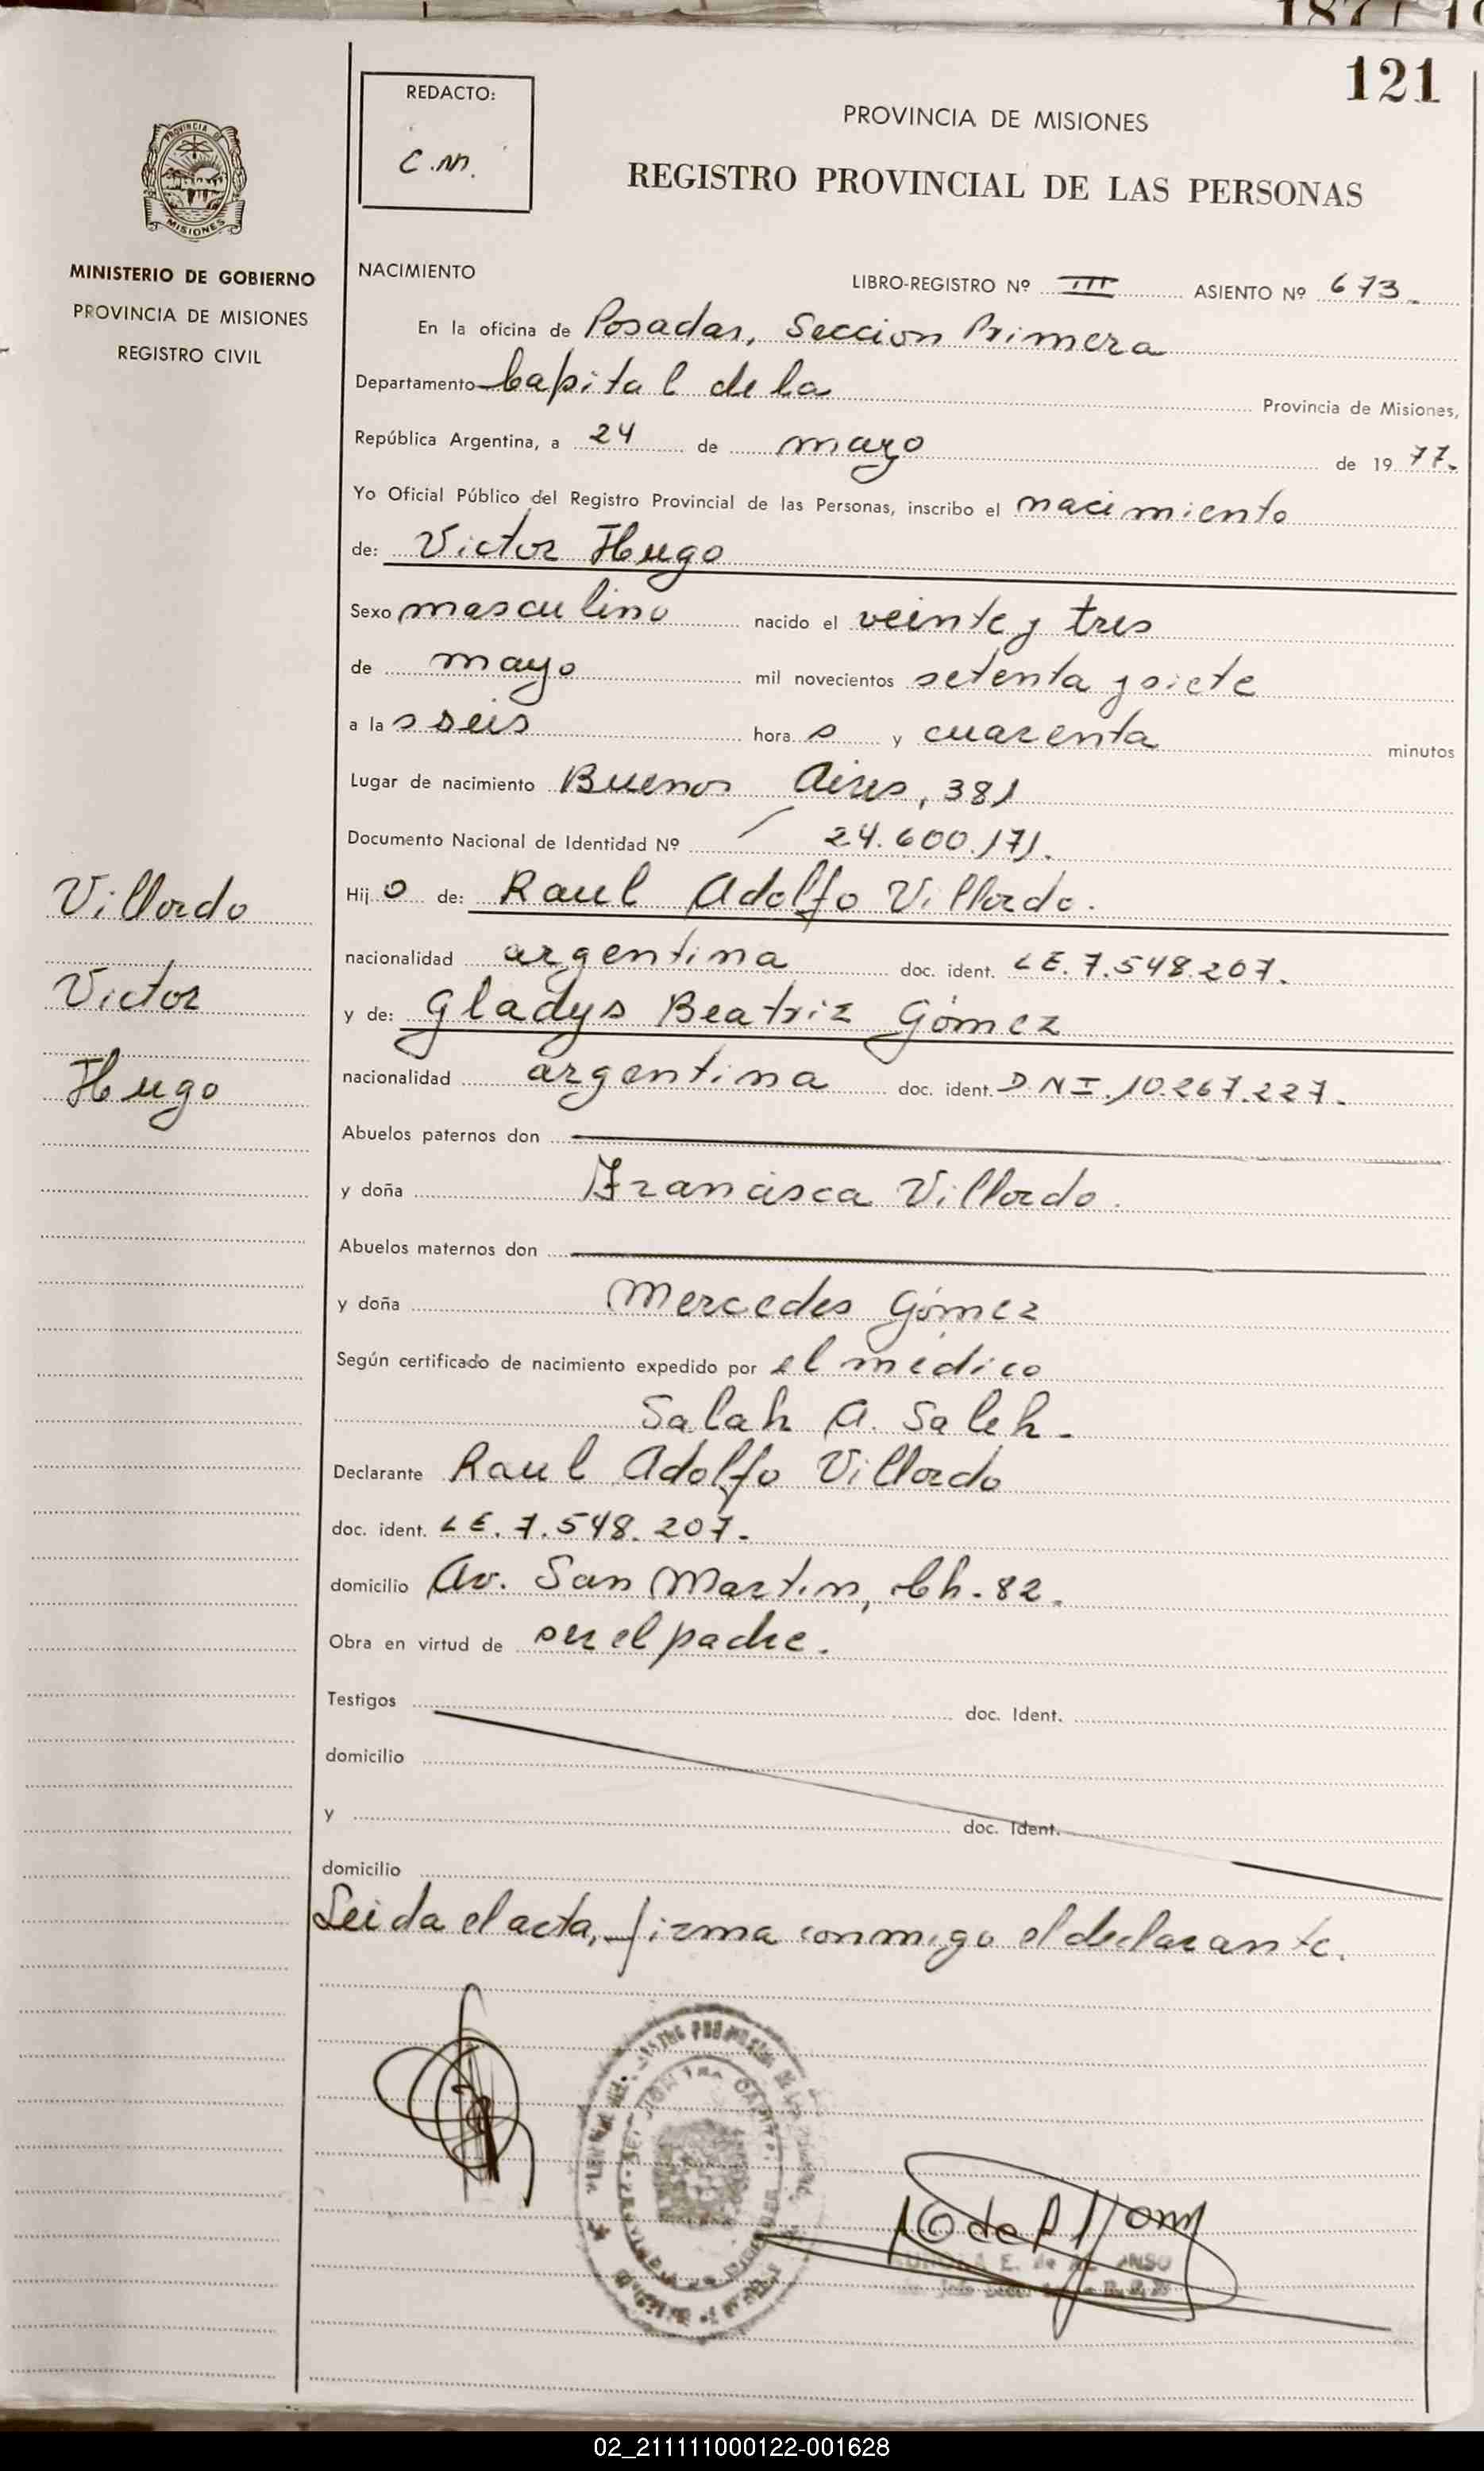 187
121
REDACTO:
C.M.
PROVINCIA DE MISIONES
REGISTRO PROVINCIAL DE LAS PERSONAS
PROVINCIA D
MISIONES
MINISTERIO DE GOBIERNO
PROVINCIA DE MISIONES
REGISTRO CIVIL
NACIMIENTO
LIBRO-REGISTRO Nº III ASIENTO Nº 673.
En la oficina de Posadas, Seccion Primera
Departamento Capital de la Provincia de Misiones,
República Argentina, a 24 de mayo de 1977.
Yo Oficial Público del Registro Provincial de las Personas, inscribo el nacimiento
de: Victor Hugo
Sexo masculino nacido el veinte y tres
de mayo mil novecientos setenta y siete
a las seis horas y cuarenta minutos
Lugar de nacimiento Buenos Aires, 381
Documento Nacional de Identidad Nº 24.600.171.
Villordo
Hijo de: Raul Adolfo Villordo.
nacionalidad argentina doc. ident. LE. 7.548.207.
Victor
y de: Gladys Beatriz Gómez
Hugo
nacionalidad argentina doc. ident. DNI. 10.267.227.
Abuelos paternos don
y doña Francisca Villordo.
Abuelos maternos don
y doña Mercedes Gómez
Según certificado de nacimiento expedido por el médico
Salah A. Saleh.
Declarante Raul Adolfo Villordo
doc. ident. LE. 7.548.207.
domicilio Av. San Martin, Ch. 82.
Obra en virtud de ser el padre.
Testigos doc. Ident.
domicilio
y doc. Ident.
domicilio
Leida el acta, firma conmigo el declarante.
E. de
02_211111000122-001628